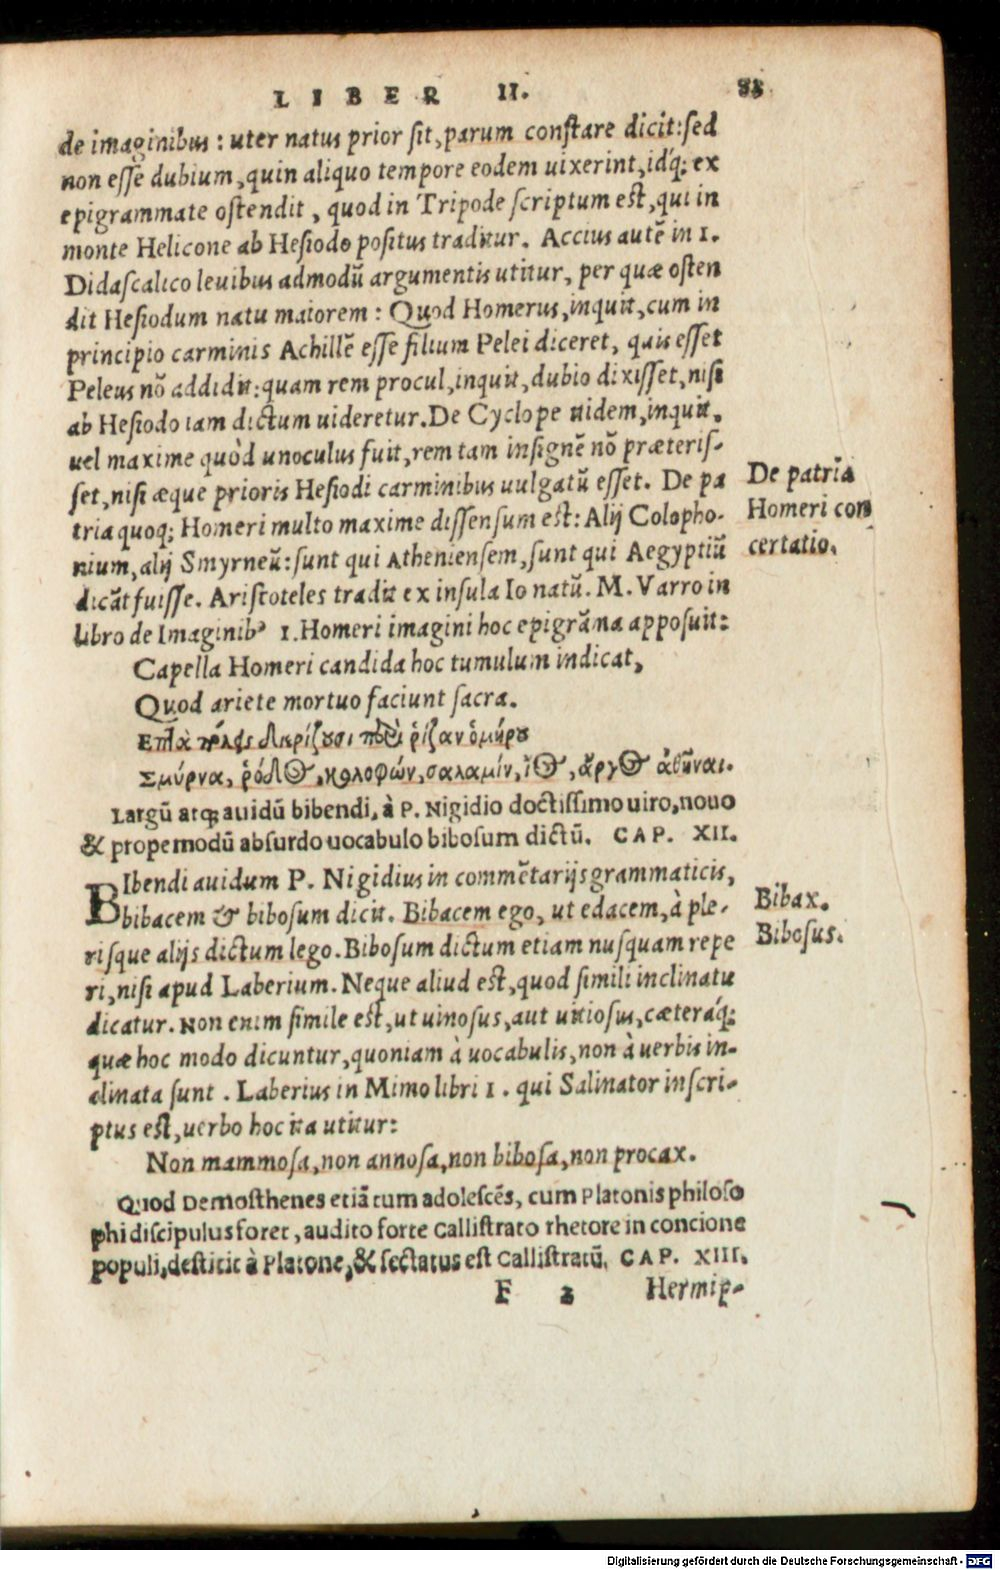 LIBER II. 83
de imaginibus : uter natus prior ſit, parum conſtare dicit: ſed
non eſſe dubium, quin aliquo tempore eodem uixerint, idq́; ex
epigrammate oſtendit, quod in Tripode ſcriptum eſt, qui in
monte Helicone ab Heſiodo poſitus traditur. Accius autē in 1.
Didaſcalico leuibus admodū argumentis utitur, per quæ oſten
dit Heſiodum natu maiorem : Quod Homerus, inquit, cum in
principio carminis Achillē eſſe filium Pelei diceret, quis eſſet
Peleus nō addidit: quam rem procul, inquit, dubio dixiſſet, niſi
ab Heſiodo iam dictum uideretur. De Cyclope itidem, inquit,
uel maxime quòd unoculus fuit, rem tam inſignē nō præteriſ-
ſet, niſi æque prioris Heſiodi carminibus uulgatū eſſet. De pa
tria quoq; Homeri multo maxime diſſenſum eſt: Alij Colopho-
nium, alij Smyrneū: ſunt qui Athenienſem, ſunt qui Aegyptiū
dicāt fuiſſe. Ariſtoteles tradit ex inſula Io natū. M. Varro in
libro de Imaginibꝰ 1. Homeri imagini hoc epigrāma appoſuit:
De patria
Homeri con
certatio.
Capella Homeri candida hoc tumulum indicat,
Quod ariete mortuo faciunt ſacra.
Επτὰ πόλεις διερίζουσι περὶ ῥίζαν ὁμήρου
Σμύρνα, ῥόδος, κολοφών, σαλαμίν, ἴος, ἄργος ἀθῆναι.
Largū atq; auidū bibendi, à P. Nigidio doctiſſimo uiro, nouo
& propemodū abſurdo uocabulo biboſum dictū. CAP. XII.
BIbendi auidum P. Nigidius in commētarijs grammaticis,
bibacem & biboſum dicit. Bibacem ego, ut edacem, à ple-
riſque alijs dictum lego. Biboſum dictum etiam nuſquam repe
ri, niſi apud Laberium. Neque aliud eſt, quod ſimili inclinatu
dicatur. Non enim ſimile eſt, ut uinoſus, aut uitioſus, cæteraq́;
quæ hoc modo dicuntur, quoniam à uocabulis, non à uerbis in-
clinata ſunt . Laberius in Mimo libri 1. qui Salinator inſcri-
ptus eſt, uerbo hoc ita utitur:
Bibax.
Biboſus.
Non mammoſa, non annoſa, non biboſa, non procax.
Quod Demoſthenes etiā tum adoleſcēs, cum Platonis philoſo
phi diſcipulus foret, audito forte Calliſtrato rhetore in concione
populi, deſtitit à Platone, & ſectatus eſt Calliſtratū. CAP. XIII.
F 2 Hermip-
Digitalisierung gefördert durch die Deutsche Forschungsgemeinschaft - DFG